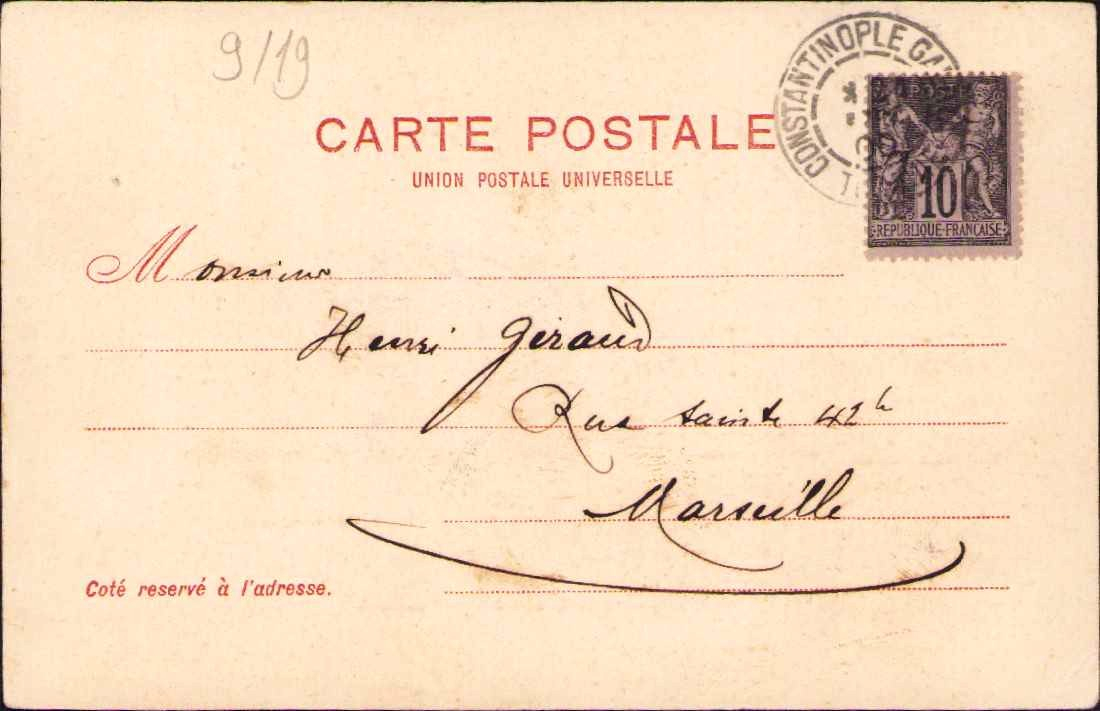 9/19
CONSTANTINOPLE GA
POSTE
10
REPUBLIQUE FRANÇAISE
CARTE POSTALE
UNION POSTALE UNIVERSELLE
Monsieur
Henri Geraud
Rue Sainte 42
Marseille
Coté reservé à l'adresse.